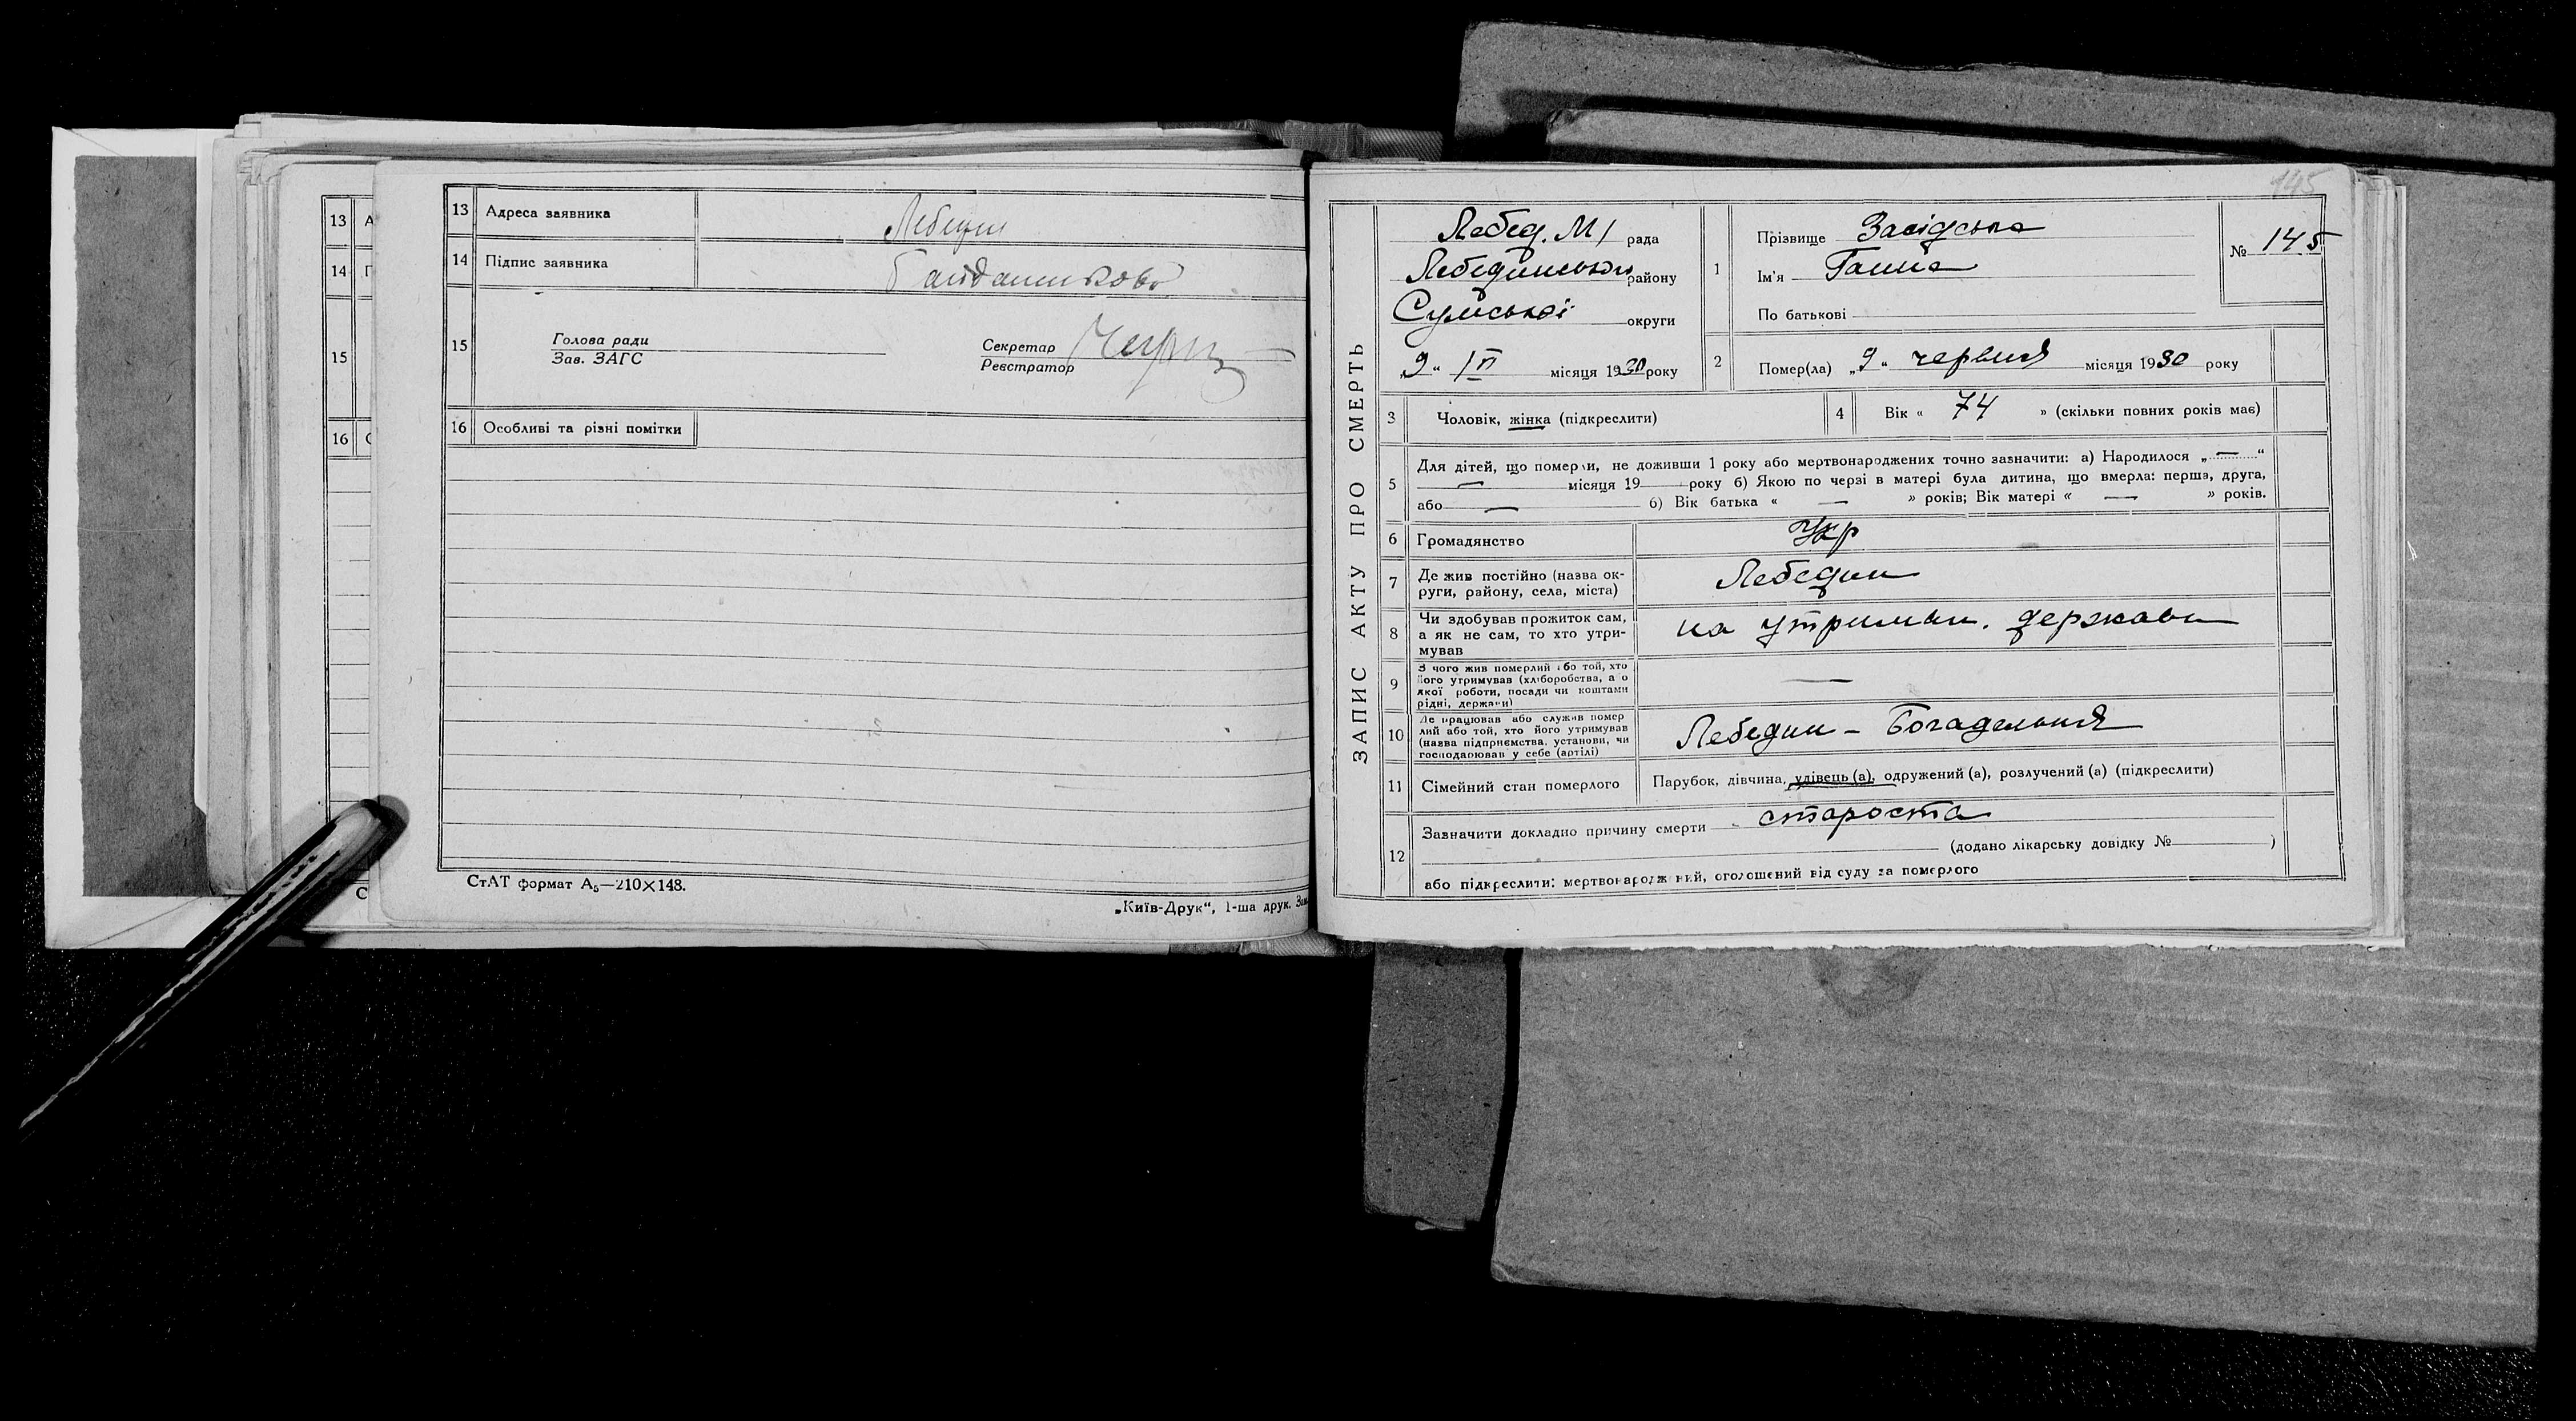 13 А
14 П
15
16 О
С
13 Адреса заявника Лебедин
14 Підпис заявника
15 Голова ради
Зав. ЗАГС
Секретар
Реєстратор
16 Особливі та різні помітки
СтАТ формат А5—210×148.
„Київ-Друк“, 1-ша друк. Зам.
145
ЗАПИС АКТУ ПРО СМЕРТЬ
Лебед. М/ рада
Лебединського району
Сумської округи
„9“ місяця 1930 року
1 Прізвище
Ім'я Ганна
По батькові
№ 145
2 Помер(ла) „9“ червня місяця 1930 року
3 Чоловік, жінка (підкреслити)
4 Вік « 74 » (скільки повних років має)
5 Для дітей, що померли, не доживши 1 року або мертвонароджених точно зазначити: а) Народилося „ — “
— місяця 19 року б) Якою по черзі в матері була дитина, що вмерла: перша, друга,
або — б) Вік батька « — » років; Вік матері « — » років.
6 Громадянство Укр
7 Де жив постійно (назва ок-
руги, району, села, міста) Лебедин
8 Чи здобував прожиток сам,
а як не сам, то хто утри-
мував на утриман. держави
9 З чого жив померлий або той, хто
його утримував (хліборобства, або
якої роботи, посади чи коштами
рідні, держави) —
10 Де працював або служив помер
лий або той, хто його утримував
(назва підприємства, установи, чи
господарював у себе (артілі) Лебедин – Богадельня
11 Сімейний стан померлого Парубок, дівчина, удівець (а), одружений (а), розлучений (а) (підкреслити)
12 Зазначити докладно причину смерти старость
(додано лікарську довідку № )
або підкреслити: мертвонароджений, оголошений від суду за померлого